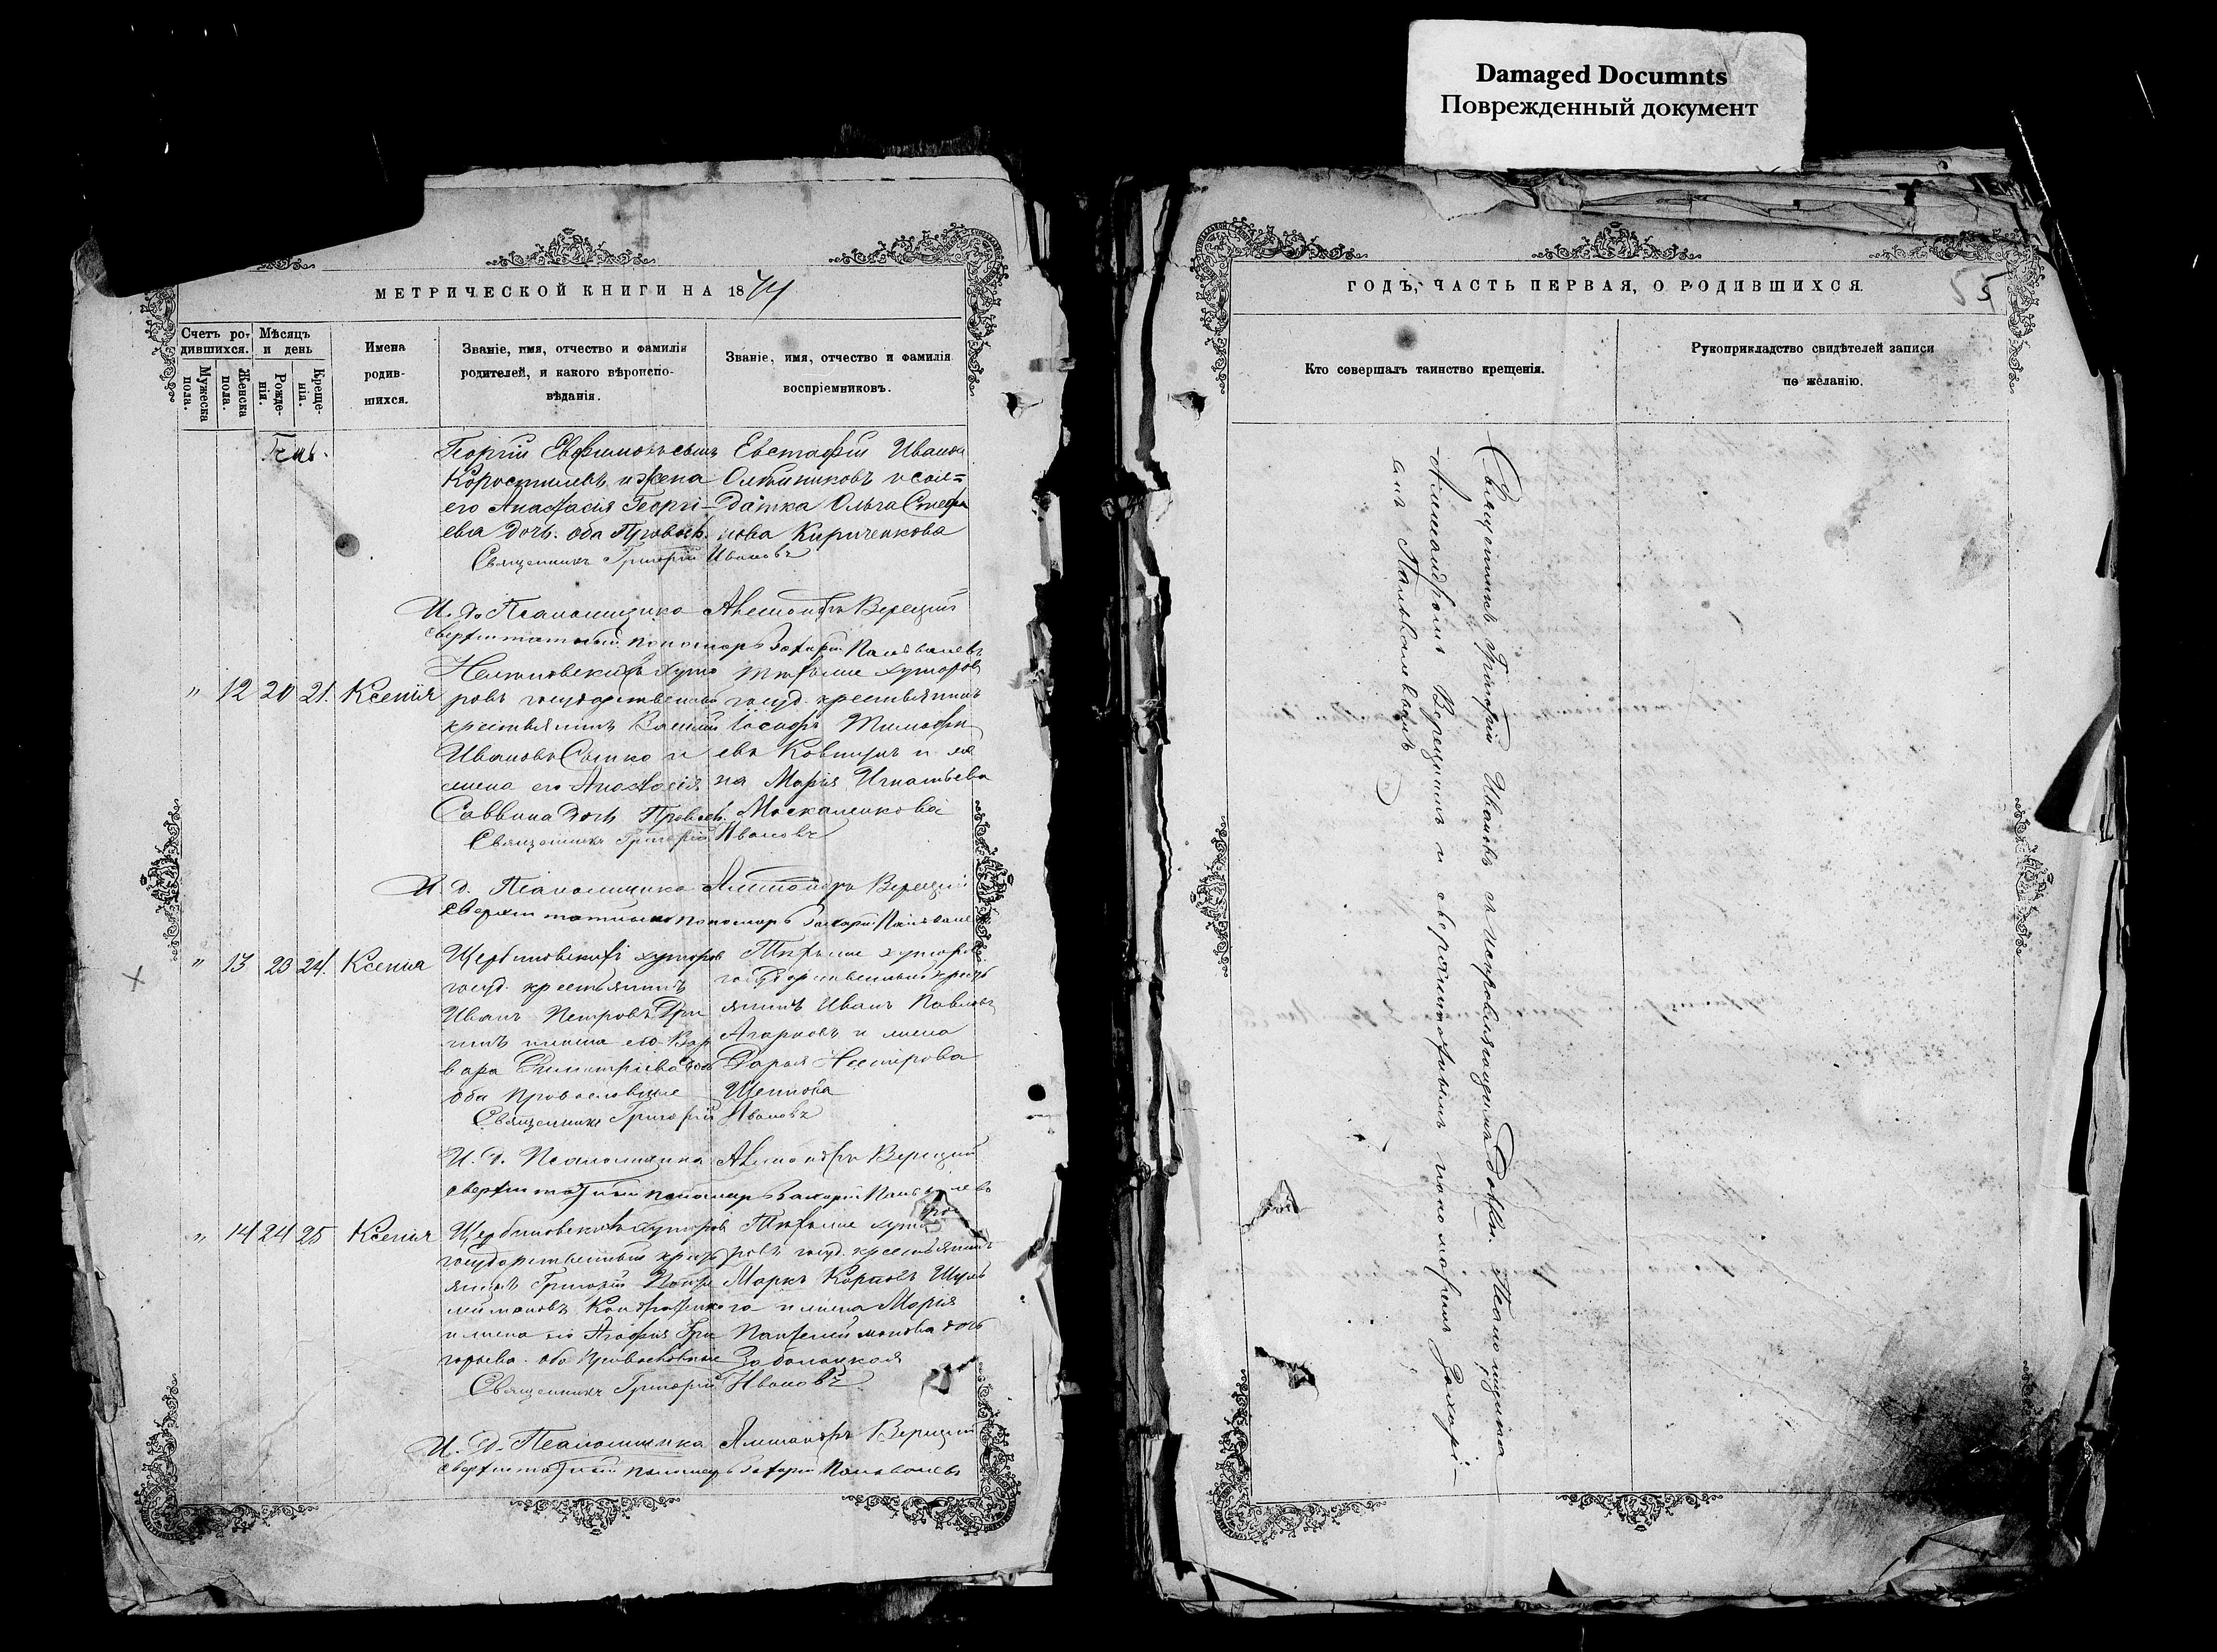 Damaged Documnts
Поврежденный документ
МЕТРИЧЕСКОЙ КНИГИ НА 1874
Счетъ ро-
дившихся.
Мужеска
пола.
Женска
пола.
Мѣсяцъ
и день
Рожде-
нія.
Креще-
нія.
Имена
родив-
шихся.
Званіе, имя, отчество и фамилія
родителей, и какого вѣроиспо-
вѣданія.
Званіе, имя, отчество и фамилія
воспріемниковъ.
Георгій
Евстафій Иванов
и жена
его Анастасія Георгі-
ева дочь. оба Правосл.
датка Ольга Стефа
нова Кириченкова
Священникъ Григорій Ивановъ
И. д. Псаломщика Александръ Верецкій
сверхштатный пономарь Захарій
" 12 20 21. Ксенія
хуто
ровъ государственный
крестьянинъ Василій
Ивановъ Сытко и
жена его Анастасія
Саввина дочь Правосл.
тѣхъже хуторовъ
госуд. крестьянинъ
Іосифъ Тимофѣ
евъ Ковтунъ и же
на Марія Игнатьева
Москаленкова
Священникъ Григорій Ивановъ
И. д. Псаломщика Александръ Верецкій
сверхштатный пономарь Захарій
" 13 23 24. Ксенія
Щербиновскихъ хуторовъ
госуд. крестьянинъ
Иванъ Петровъ
и жена его Вар
вара Димитріева дочь
оба православные
Тѣхъже хуторовъ
государственный кресть
янинъ Иванъ Павловъ
Агарковъ и жена
Дарья Нестерова
Священникъ Григорій Ивановъ
И. д. Псаломщика Александръ Верецкій
сверхштатный пономарь Захарій
" 14 24 25 Ксенія
Щербиновскихъ хуторовъ
государственный кресть
янинъ Григорій Панте
леимоновъ
и жена его Агафія Гри
горьева. оба православные
Тѣхъже хуто
ровъ госуд. крестьянинъ
Маркъ Карповъ Шуль
га и жена Марія
Пантелеимонова дочь
Заболоцкая
Священникъ Григорій Ивановъ
И. д. Псаломщика Александръ Верецкій
сверхштатный пономарь Захарій
ГОДЪ, ЧАСТЬ ПЕРВАЯ, О РОДИВШИХСЯ.
55
Кто совершалъ таинство крещенія.
Рукоприкладство свидѣтелей записи
по желанію.
Священникъ Григорій Ивановъ съ исправляющимъ должн. Псаломщика
Александромъ Верецкимъ и сверхштатнымъ пономаремъ Захарі-